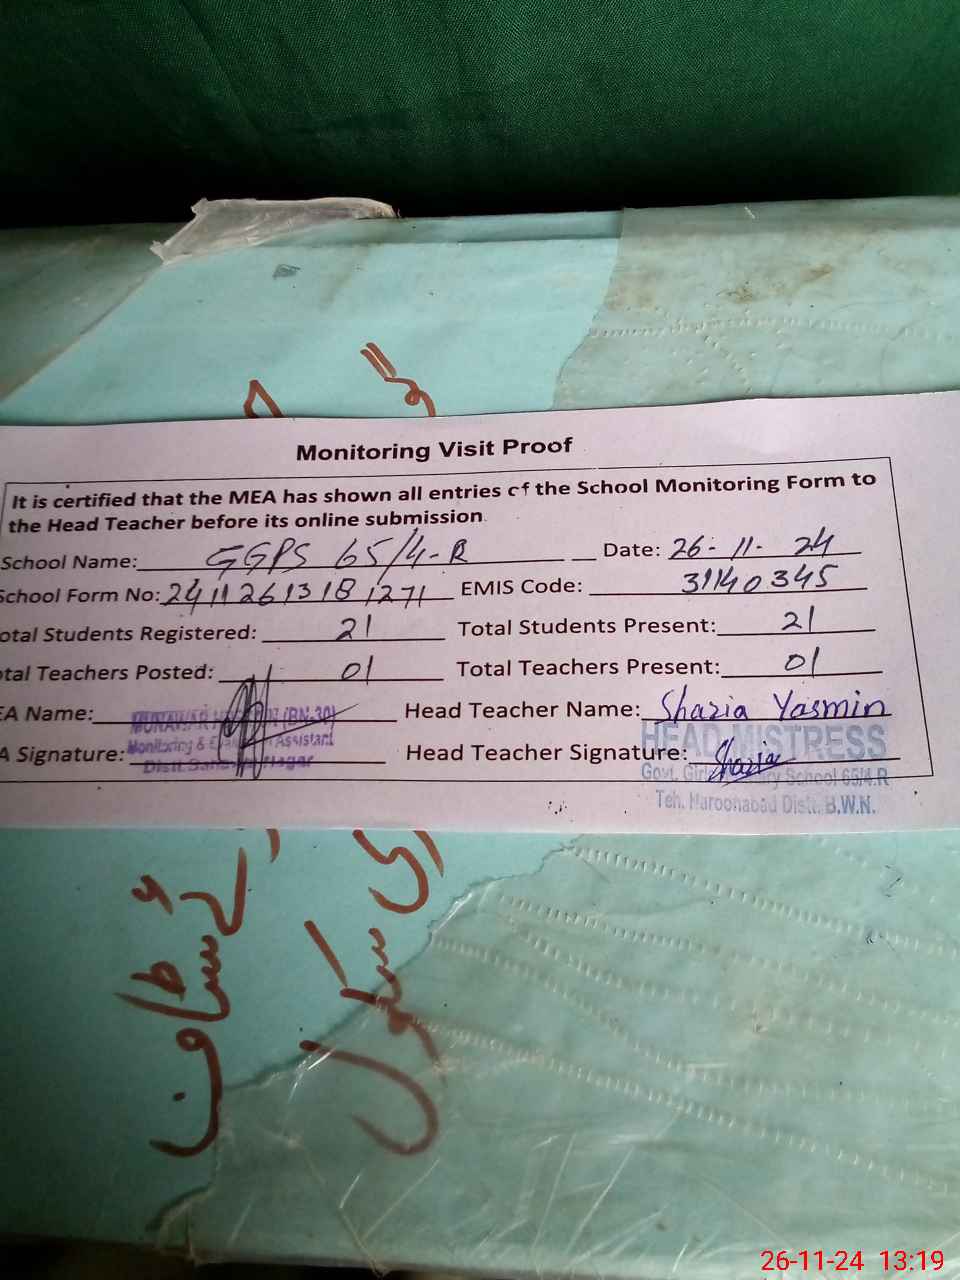 Monitoring Visit Proof
It is certified that the MEA has shown all entries of the School Monitoring Form to
the Head Teacher before its online submission.
School Name: GGPS 65/4-R Date: 26-11-24
School Form No: 24112613181271 EMIS Code: 31140345
otal Students Registered: 21 Total Students Present: 21
tal Teachers Posted: 01 Total Teachers Present: 01
EA Name: (BN-30) Head Teacher Name: Shazia Yasmin
HEAD MISTRESS
A Signature: Monitoring & Assistant Head Teacher Signature: Shazia
Govt. School 65/4.R
Teh. Haroonabad Distt. B.W.N.
سکول
26-11-24 13:19